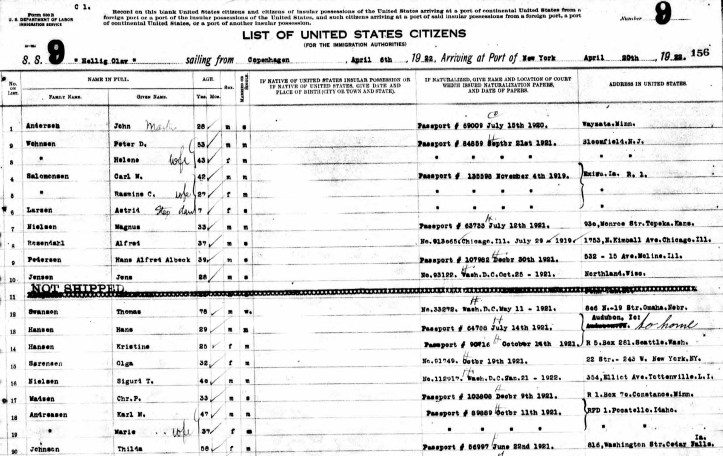 C 1.
Form 630 B
U. S. DEPARTMENT OF LABOR
IMMIGRATION SERVICE
Record on this blank United States citizens and citizens of insular possessions of the United States arriving at a port of continental United States from a
foreign port or a port of the insular possessions of the United States, and such citizens arriving at a port of said insular possessions from a foreign port, a port
of continental United States, or a port of another insular possession.
Number 9
9
LIST OF UNITED STATES CITIZENS
(FOR THE IMMIGRATION AUTHORITIES)
S. S. "Hellig Olav" sailing from Copenhagen, April 6th, 1922, Arriving at Port of New York April 20th, 1922. 156
No. on List. NAME IN FULL. AGE. Sex. Married or Single. IF NATIVE OF UNITED STATES INSULAR POSSESSION OR IF NATIVE OF UNITED STATES, GIVE DATE AND PLACE OF BIRTH (CITY OR TOWN AND STATE). IF NATURALIZED, GIVE NAME AND LOCATION OF COURT WHICH ISSUED NATURALIZATION PAPERS, AND DATE OF PAPERS. ADDRESS IN UNITED STATES.
Family Name. Given Name. Yrs. Mos.
1 Andersen John 26 m s Passport # 69009 July 15th 1920. Wayzata, Minn.
2 Wehnsen Peter D. 53 m m Passport # 84859 Septbr 21st 1921. Bloomfield, N.J.
3 " Helene wife 43 f m " " " "
4 Salomonsen Carl M. 42 m m Passport # 135598 November 4th 1919. R. 1.
5 " Rasmine C. wife 27 f m " " " "
6 Larsen Astrid Step dau 7 f s " " " "
7 Nielsen Magnus 33 m m Passport # 63733 July 12th 1921. 930, Monroe Str. Topeka, Kans.
8 Rosendahl Alfred 37 m s Chicago, Ill. July 29 - 1919. 1753, N. Kimball Ave. Chicago. Ill.
9 Petersen Hans Alfred Albeck 39 m s Passport # 107982 Decbr 30th 1921. 532 - 15 Ave. Moline. Ill.
10 Jensen Jens 28 m s No. 93122. Wash. D.C. Oct. 25 - 1921. Northland, Wisc.
11 NOT SHIPPED
12 Swansen Thomas 78 m w. No. 33272. Wash. D.C. May 11 - 1921. 866 N. -19 Str. Omaha, Nebr.
13 Hansen Hans 29 m m Passport # 64708 July 14th 1921. Audubon, Ia: to home
14 Hansen Kristine 25 f m Passport # 90716 October 14th 1921. R 5. Box 281. Seattle. Wash.
15 Sørensen Olga 32 f s No. 91749. Octbr 19th 1921. 22 Str. - 243 W. New York, NY.
16 Nielsen Sigurt T. 40 m m No. 112917. Wash. D.C. Jan. 21 - 1922. 354, Elliot Ave. Tottenville. L. I.
17 Madsen Chr. P. 33 m s Passport # 103808 Decbr 9th 1921. R 1. Box 7c. Constance. Minn.
18 Andreasen Karl M. 47 m m Passport # 89889 Octbr 11th 1921. RFD 1. Pocatello. Idaho.
19 " Marie wife 37 f m " " " "
20 Johnson Thilda 56 f m Passport # 56997 June 22nd 1921. 816, Washington Str. Cedar Falls. Ia.